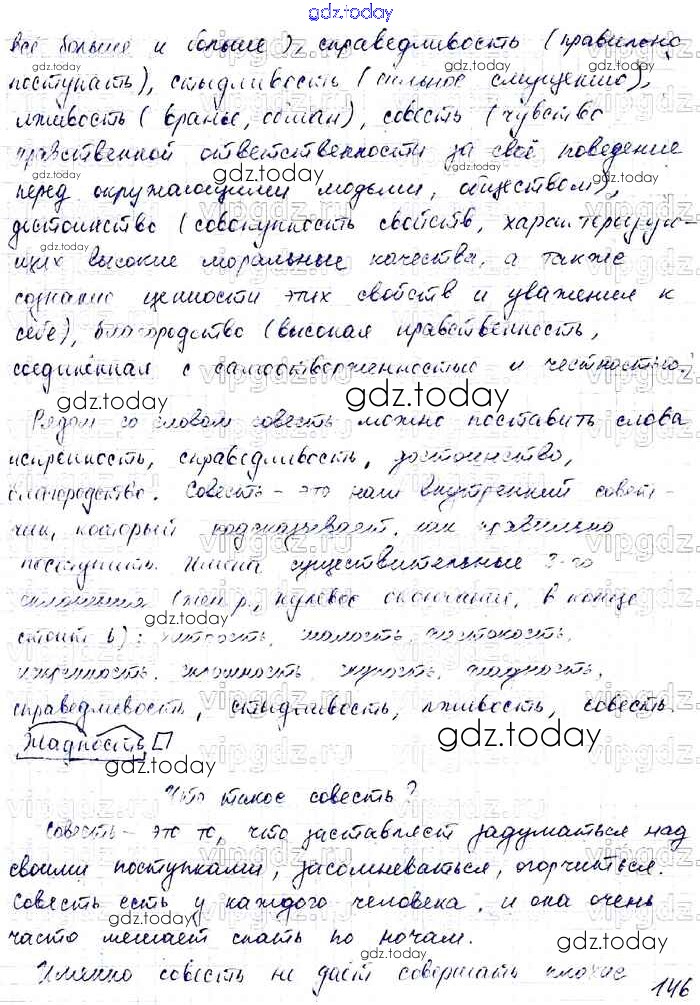 gdz.today
всё больше и больше), справедливость (правильно
поступать), стыдливость (сильное смущению),
лживость (враньё, обман), совесть (чувство
нравственной ответственности за своё поведение
перед окружающими людьми, обществом),
достоинство (совокупность свойств, характеризую-
щих высокие моральные качества, а также
сознание ценности этих свойств и уважения к
себе), благородство (высокая нравственность,
соединённая с самоотверженностью и честностью.
Рядом со словом совесть можно поставить слова
искренность, справедливость, достоинство,
благородство. Совесть - это наш внутренний совет-
чик, который подсказывает, как правильно
поступить. Имена существительные 3-го
склонения (жен р., нулевое окончание, в конце
стоит ь): хитрость, жалость, жестокость,
искренность, скромность, мудрость, жадность,
справедливость, стыдливость, лживость, совесть.
Жадность
Что такое совесть?
Совесть - это то, что заставляет задуматься над
своими поступками, засомневаться, огорчиться.
Совесть есть у каждого человека, и она очень
часто мешает спать по ночам.
Именно совесть не даёт совершать плохие
146